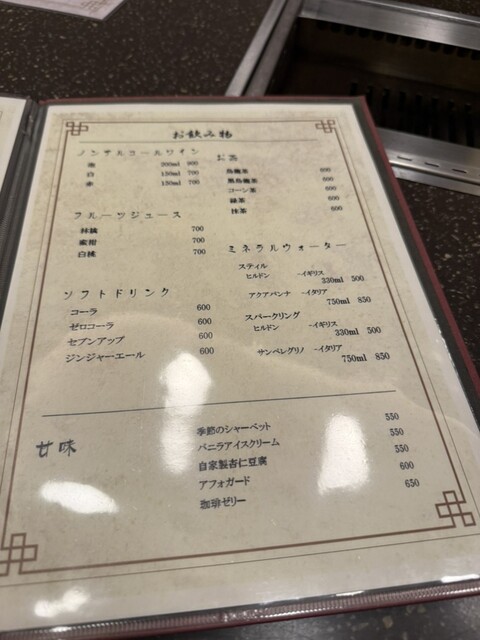 お飲み物
ノンアルコールワイン
泡 200ml 800
白 150ml 700
赤 150ml 700
フルーツジュース
林檎 700
蜜柑 700
白桃 700
ソフトドリンク
コーラ 600
ゼロコーラ 600
セブンアップ 600
ジンジャーエール 600
お茶
烏龍茶 600
黒烏龍茶 600
コーン茶 600
緑茶 600
抹茶 600
ミネラルウォーター
スティル
ヒルドン ~イギリス
330ml 500
アクアパンナ ~イタリア
750ml 850
スパークリング
ヒルドン ~イギリス
330ml 500
サンペレグリノ ~イタリア
750ml 850
甘味
季節のシャーベット 550
バニラアイスクリーム 550
自家製杏仁豆腐 550
アフォガード 600
珈琲ゼリー 650